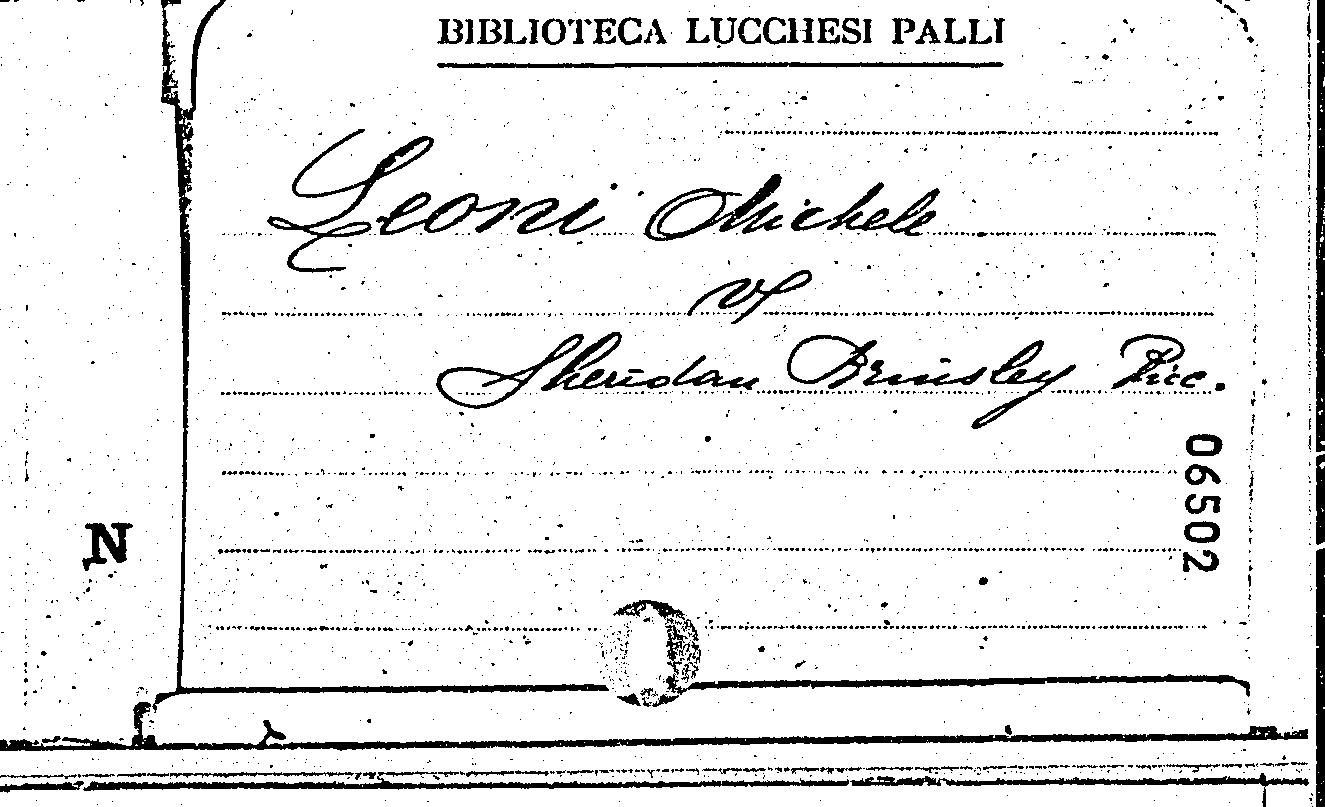 BIBLIOTECA LUCCHESI PALLI
Leoni Michele
Sheridan Brinsley Ricc.
06502
N